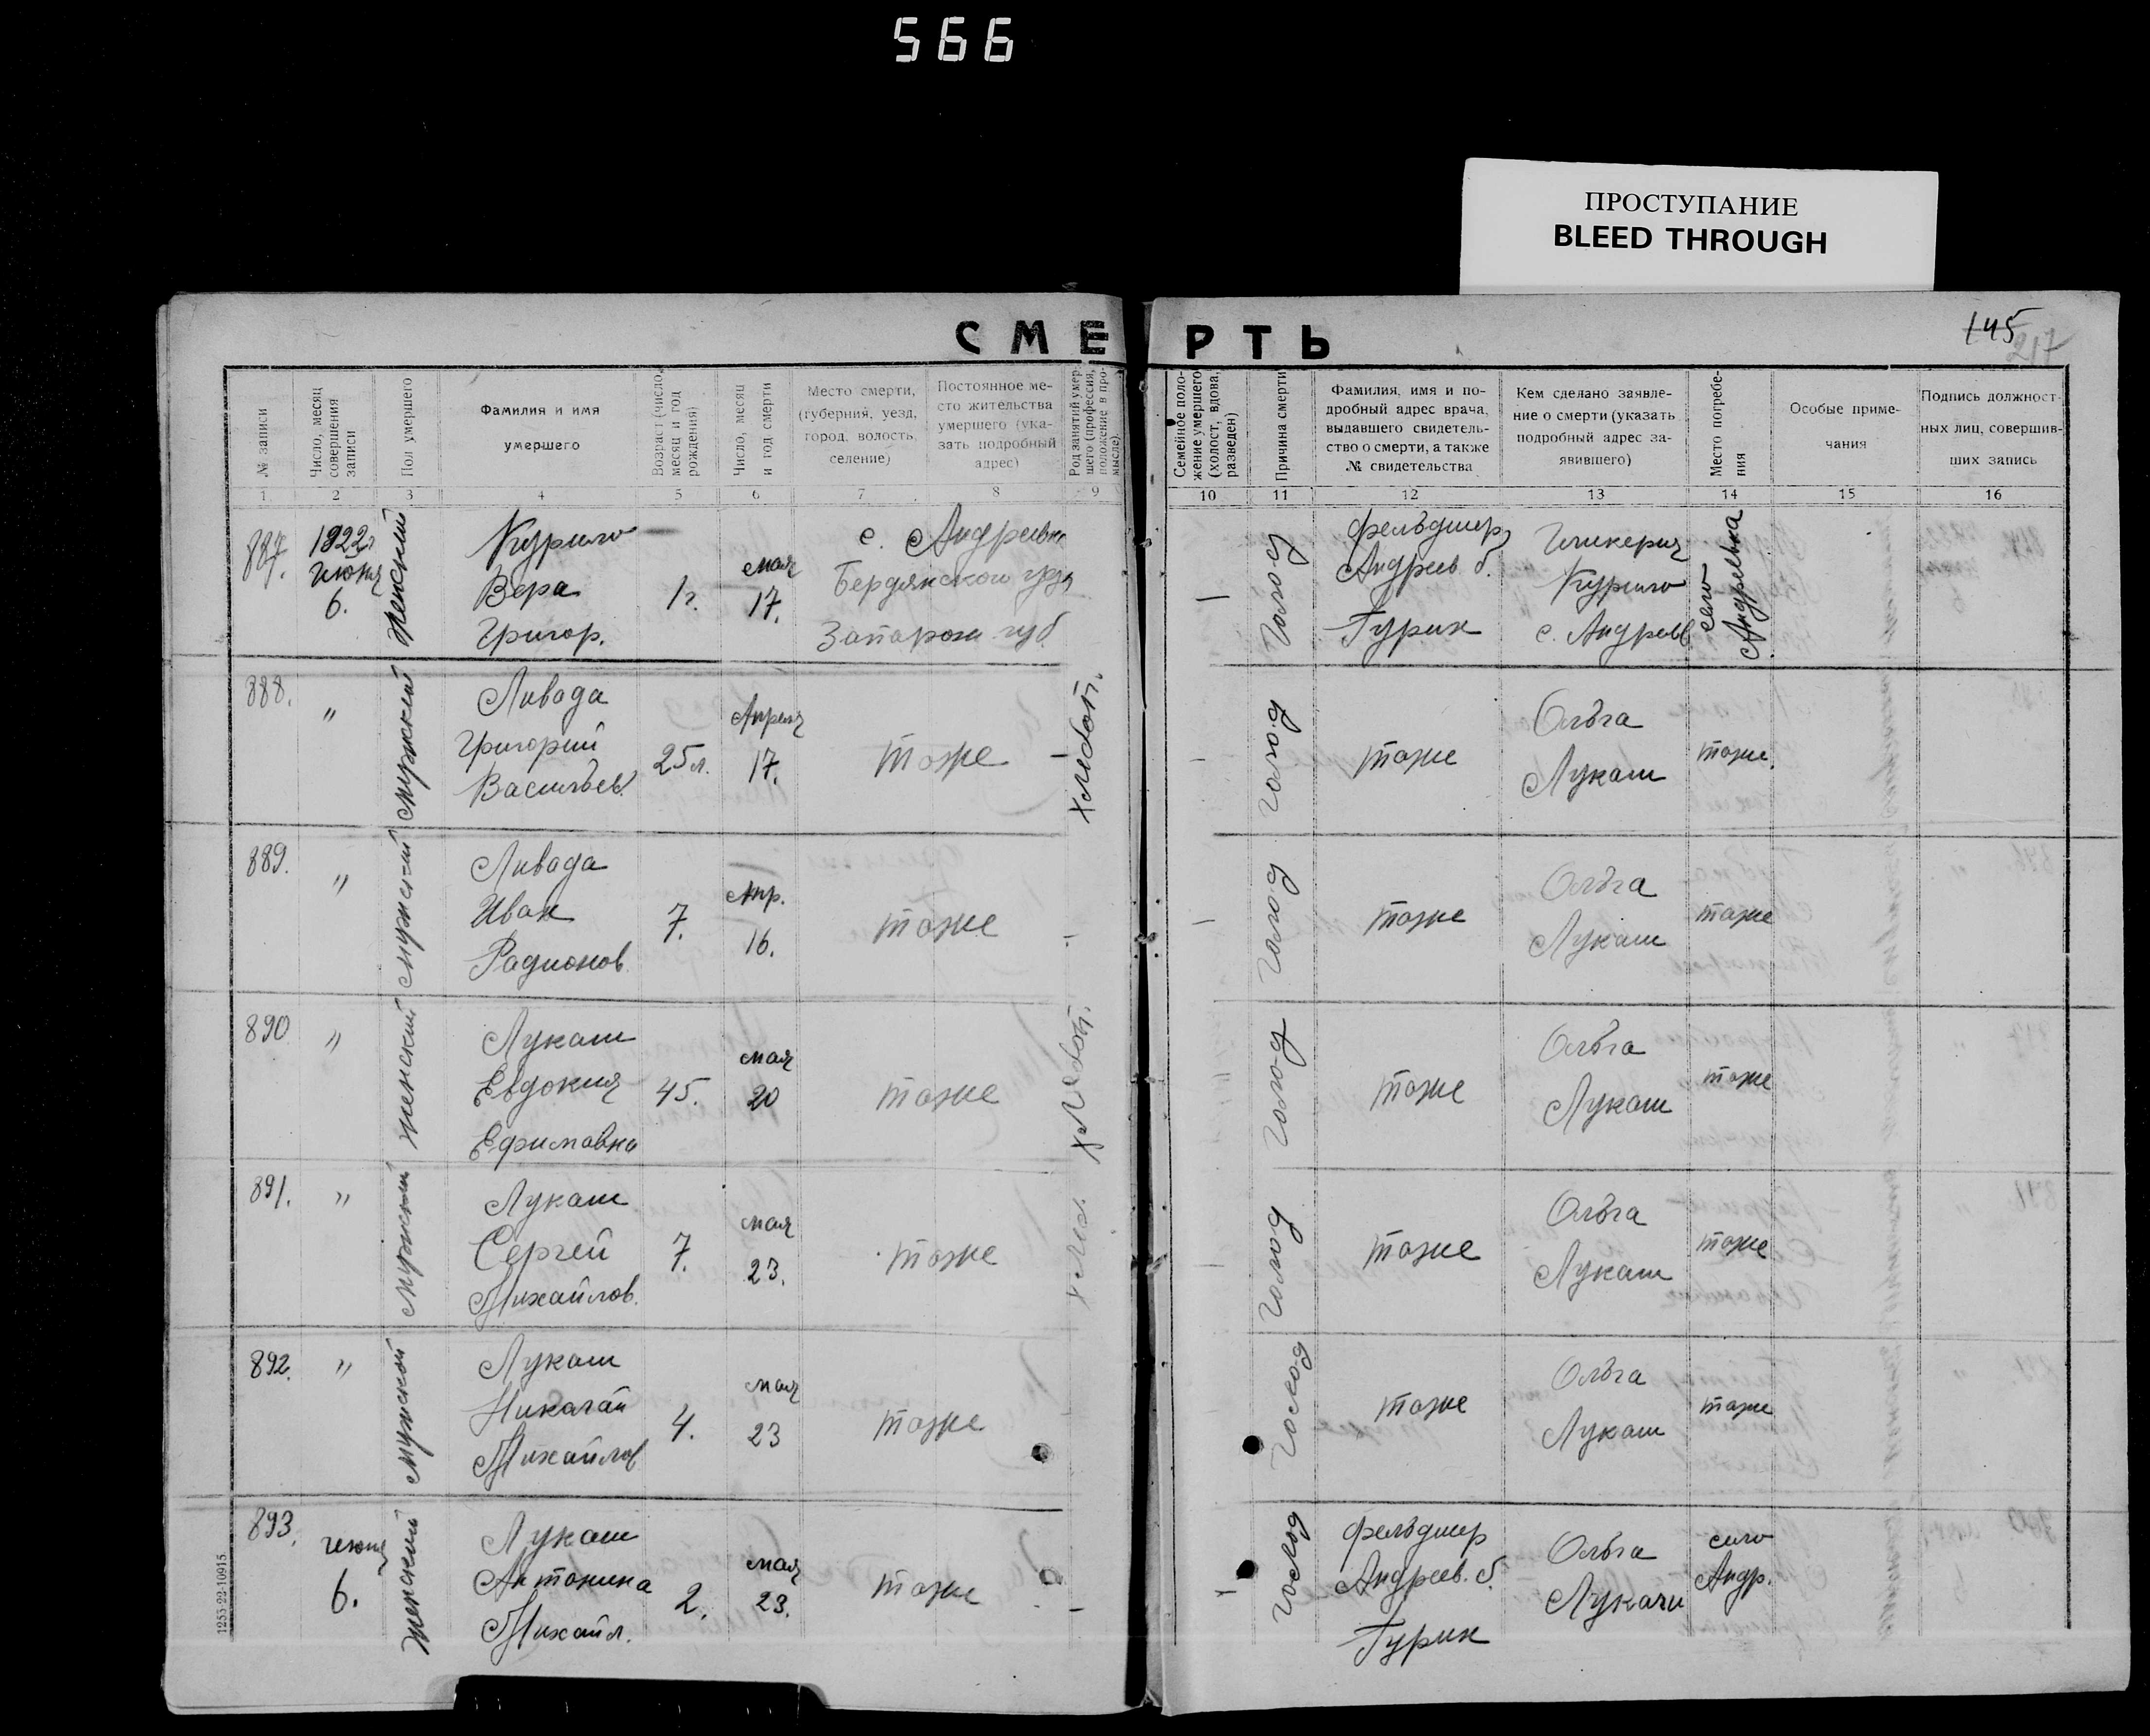 566
ПРОСТУПАНИЕ
BLEED THROUGH
145
217
СМЕРТЬ
№ записи
Число, месяц совершения записи
Пол умершего
Фамилия и имя умершего
Возраст (число, месяц и год рождения)
Число, месяц и год смерти
Место смерти, (губерния, уезд, город, волость, селение)
Постоянное место жительства умершего (указать подробный адрес)
Род занятий умершего (профессия, положение в промысле).
Семейное положение умершего (холост, вдова, разведен)
Причина смерти
Фамилия, имя и подробный адрес врача, выдавшего свидетельство о смерти, а также № свидетельства
Кем сделано заявление о смерти (указать подробный адрес заявившего)
Место погребения
Особые примечания
Подпись должностных лиц, совершивших запись
1 2 3 4 5 6 7 8 9 10 11 12 13 14 15 16
887. 1922г июня 6. Женский
Курило Вера Григор.
1г. мая 17.
с. Андреевка
Бердянского уезд
Запорож губ.
— голод
фельдшер Андреев б. Гурин
Гликерия Курило с. Андреев
село Андреевка
888. " Мужской
Ливада Григорий Васильев.
25 л. Апреля 17. тоже — хлебоп.
— голод тоже Ольга Лукаш тоже.
889. " Мужской
Ливада Иван Радионов.
7. Апр. 16. тоже -
— голод тоже Ольга Лукаш тоже
890 " Женский
Лукаш Евдокия Ефимовна
45. мая 20 тоже хлебоп.
голод тоже Ольга Лукаш тоже
891. " Мужской
Лукаш Сергей Михайлов.
7. мая 23. тоже
- голод тоже Ольга Лукаш тоже
892. " Мужской
Лукаш Николай Михайлов
4. мая 23 тоже
голод тоже Ольга Лукаш тоже
893. июня 6. Женский
Лукаш Антонина Михайл.
2. мая 23. тоже -
- голод
фельдшер Андреев. б. Гурин
Ольга Лукаш
село Андр.
1253-22-10915